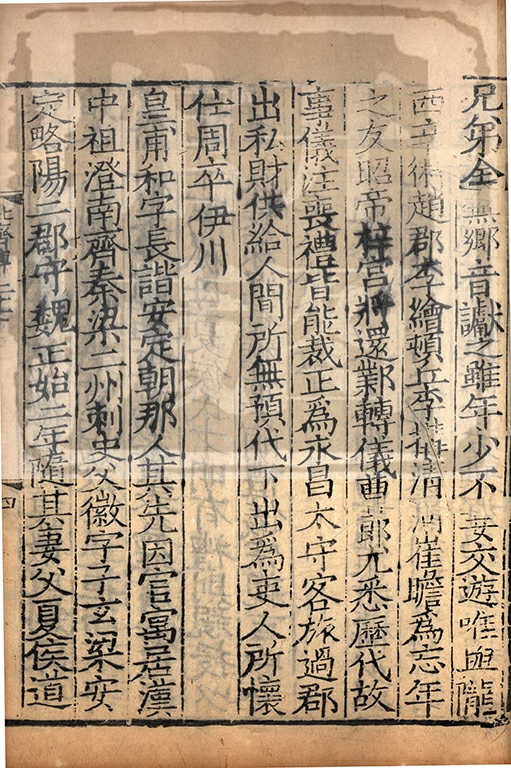 兄弟全無鄉音讞之雖年少不妄交遊唯與隴
西辛術趙郡李繪頓丘李構清河崔瞻為忘年
之友昭帝梓宮將還鄴轉儀曹郎尤悉歷代故
事儀注喪禮皆能裁正為永昌太守客旅過郡
出私財供給人間所無預代下出為吏人所懷
仕周卒伊川
皇甫和字長諧安定朝那人其先因官寓居漢
中祖澄南齊秦梁二州刺史父徽字子玄梁安
定略陽二郡守魏正始二年隨其妻父夏侯道
北齊傳二十七
四